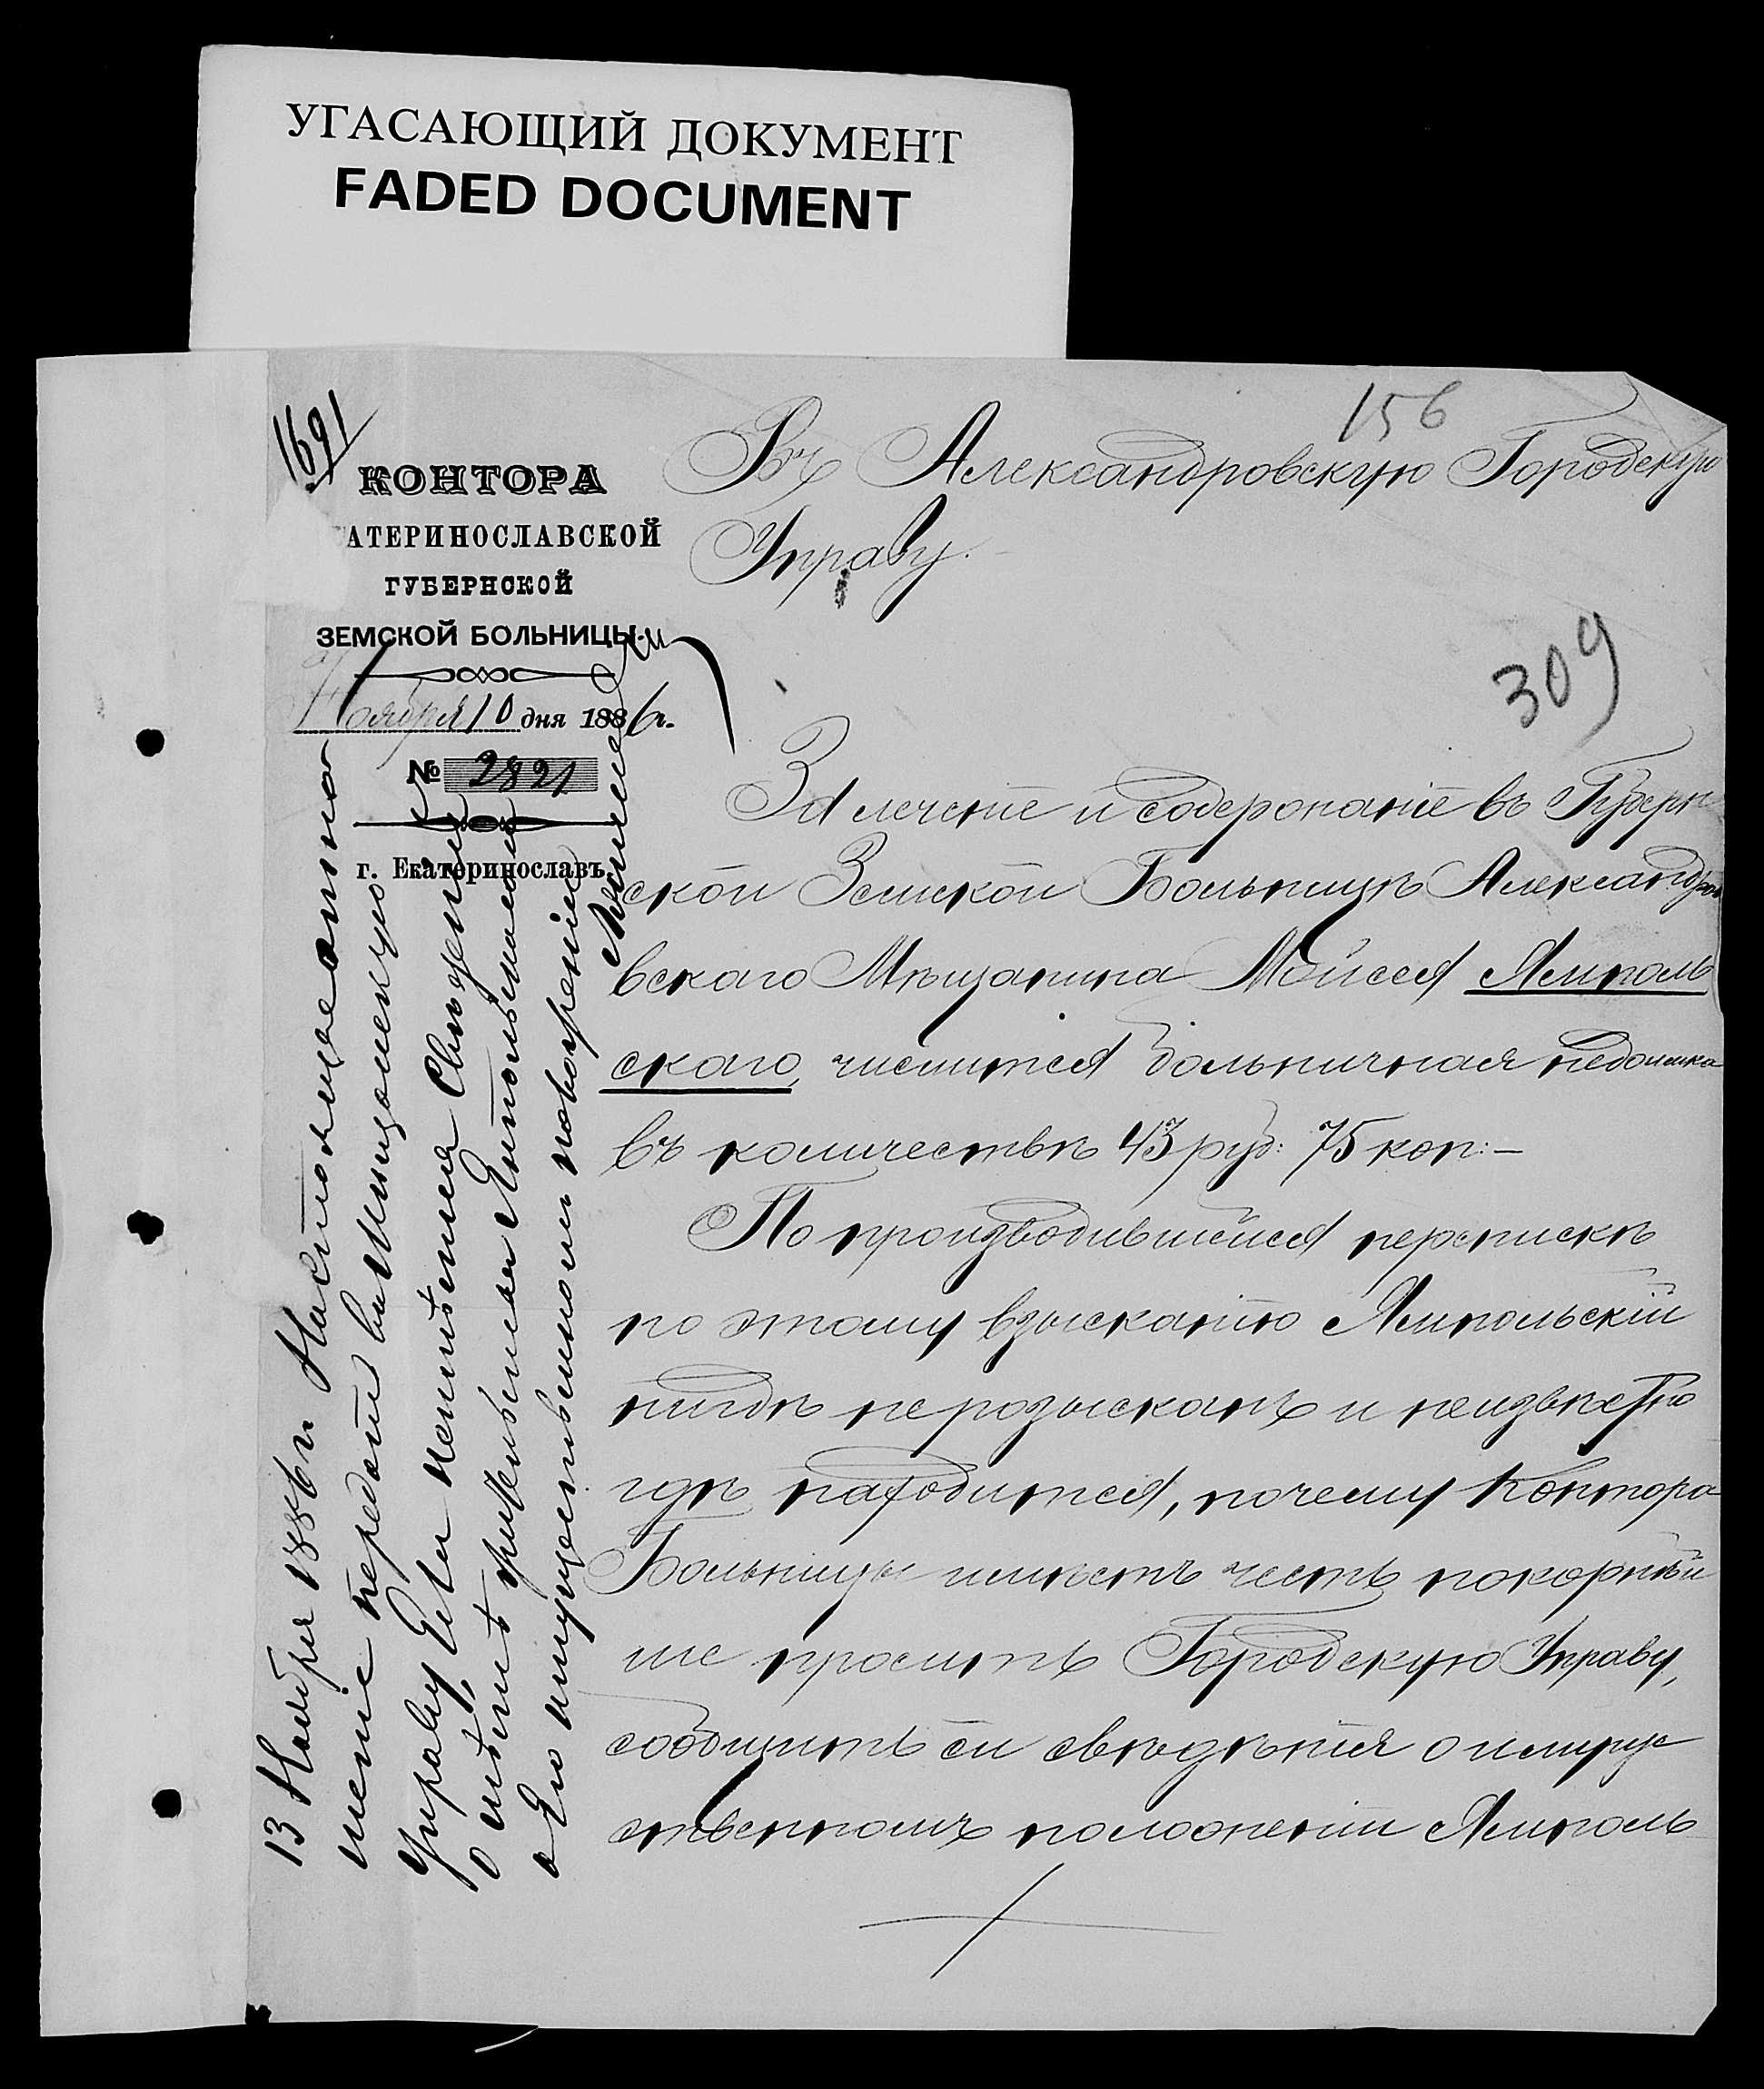 УГАСАЮЩИЙ ДОКУМЕНТ
FADED DOCUMENT
1691
156
КОНТОРА
ЕКАТЕРИНОСЛАВСКОЙ
ГУБЕРНСКОЙ
ЗЕМСКОЙ БОЛЬНИЦЫ.
Ноября 10 дня 1886 г.
№ 2821
г. Екатеринославъ.
Въ Александровскую Городскую
Управу.
309
За леченіе и содержаніе въ Губерн
ской Земской Больницѣ Александро
вскаго Мѣщанина Мойсея Ямполь
скаго, числится больничная недоимка
въ количествѣ 43 руб: 75 коп:—
По производившейся перепискѣ
по этому взысканію Ямпольскій
нигдѣ не розысканъ и неизвѣстно
гдѣ находится, почему Контора
Больницы имѣетъ честь покорнѣй
ше просить Городскую Управу,
сообщить ей свѣдѣнія о имуще
ственномъ положеніи Ямполь
13 Ноября 1886 г. Настоящее отно
шеніе передать въ Мищанскую
Управу, Ели неимѣется Свѣденій
о мѣстѣ жительства Ямпольскаго и
о Его имущественномъ